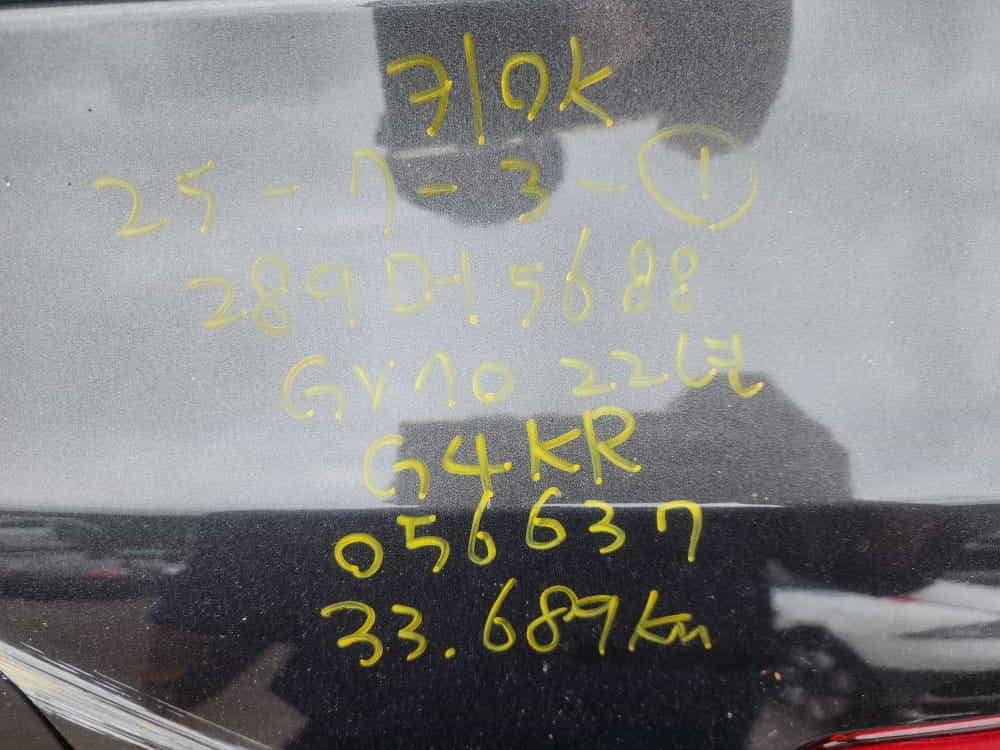 키OK
25-7-3-①
289더5688
GV70 22년
G4KR
056637
33.689Km